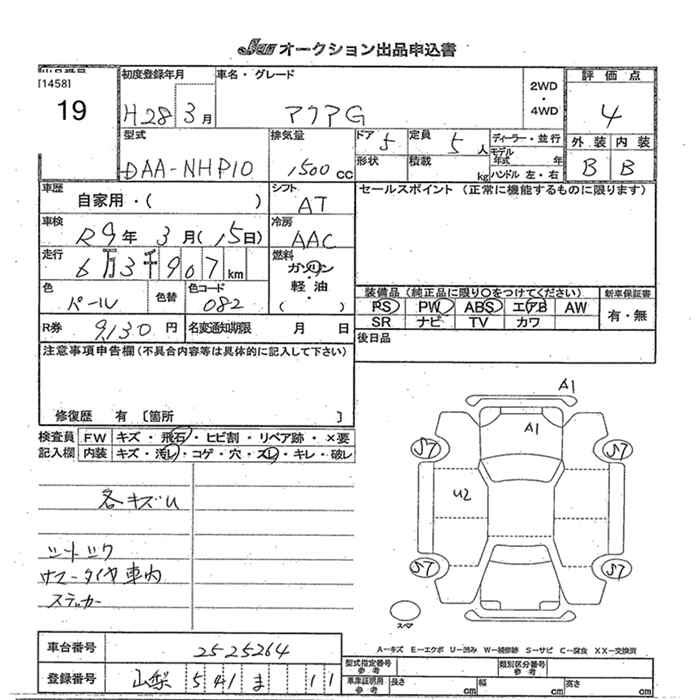 Jaa オークション出品申込書
[1458]
19
初度登録年月
H28 3月
車名・グレード
アクアG
2WD
・
4WD
評価点
4
外装 内装
B B
型式
DAA-NHP10
排気量
1500 CC
ドア 5
定員 5人
形状
積載 kg
ディーラー・並行
モデル
年式 年
ハンドル 左・右
車歴
自家用・( )
シフト
AT
セールスポイント (正常に機能するものに限ります)
車検
R9年 3月(15日)
冷房
AAC
走行
6万3千907km
燃料
ガソリン
軽油
( )
色
パール
色替
色コード
082
装備品 (純正品に限り○をつけてください)
PS PW ABS エアB AW
SR ナビ TV カワ
新車保証書
有・無
R券 9,130円
名変通知期限 月 日
後日品
注意事項申告欄(不具合内容等は具体的に記入して下さい)
修復歴 有 〔箇所 〕
検査員
記入欄
FW キズ・飛石・ヒビ割・リペア跡・×要
内装 キズ・汚レ・コゲ・穴・スレ・キレ・破レ
各キズU
シートシワ
サマータイヤ車内
ステッカー
A1
A1
S7
S7
U2
S7
S7
スペア
A-キズ E-エクボ U-凹み W-補修跡 S-サビ C-腐食 XX-交換済
車台番号 2525264
登録番号 山梨 541 ま 11
型式指定番号
参考
類別区分番号
参考
車庫証明用
参考
長さ cm
幅 cm
高さ cm